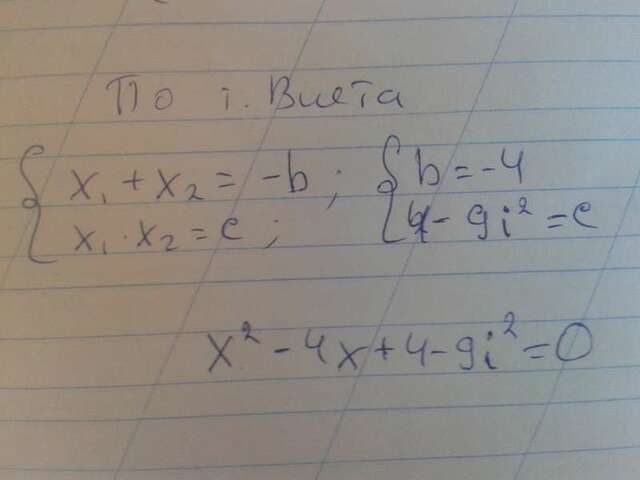 По т. Виета
{ x₁ + x₂ = -b ; { b = -4
x₁ · x₂ = c ; 4 - 9i² = c
x² - 4x + 4 - 9i² = 0